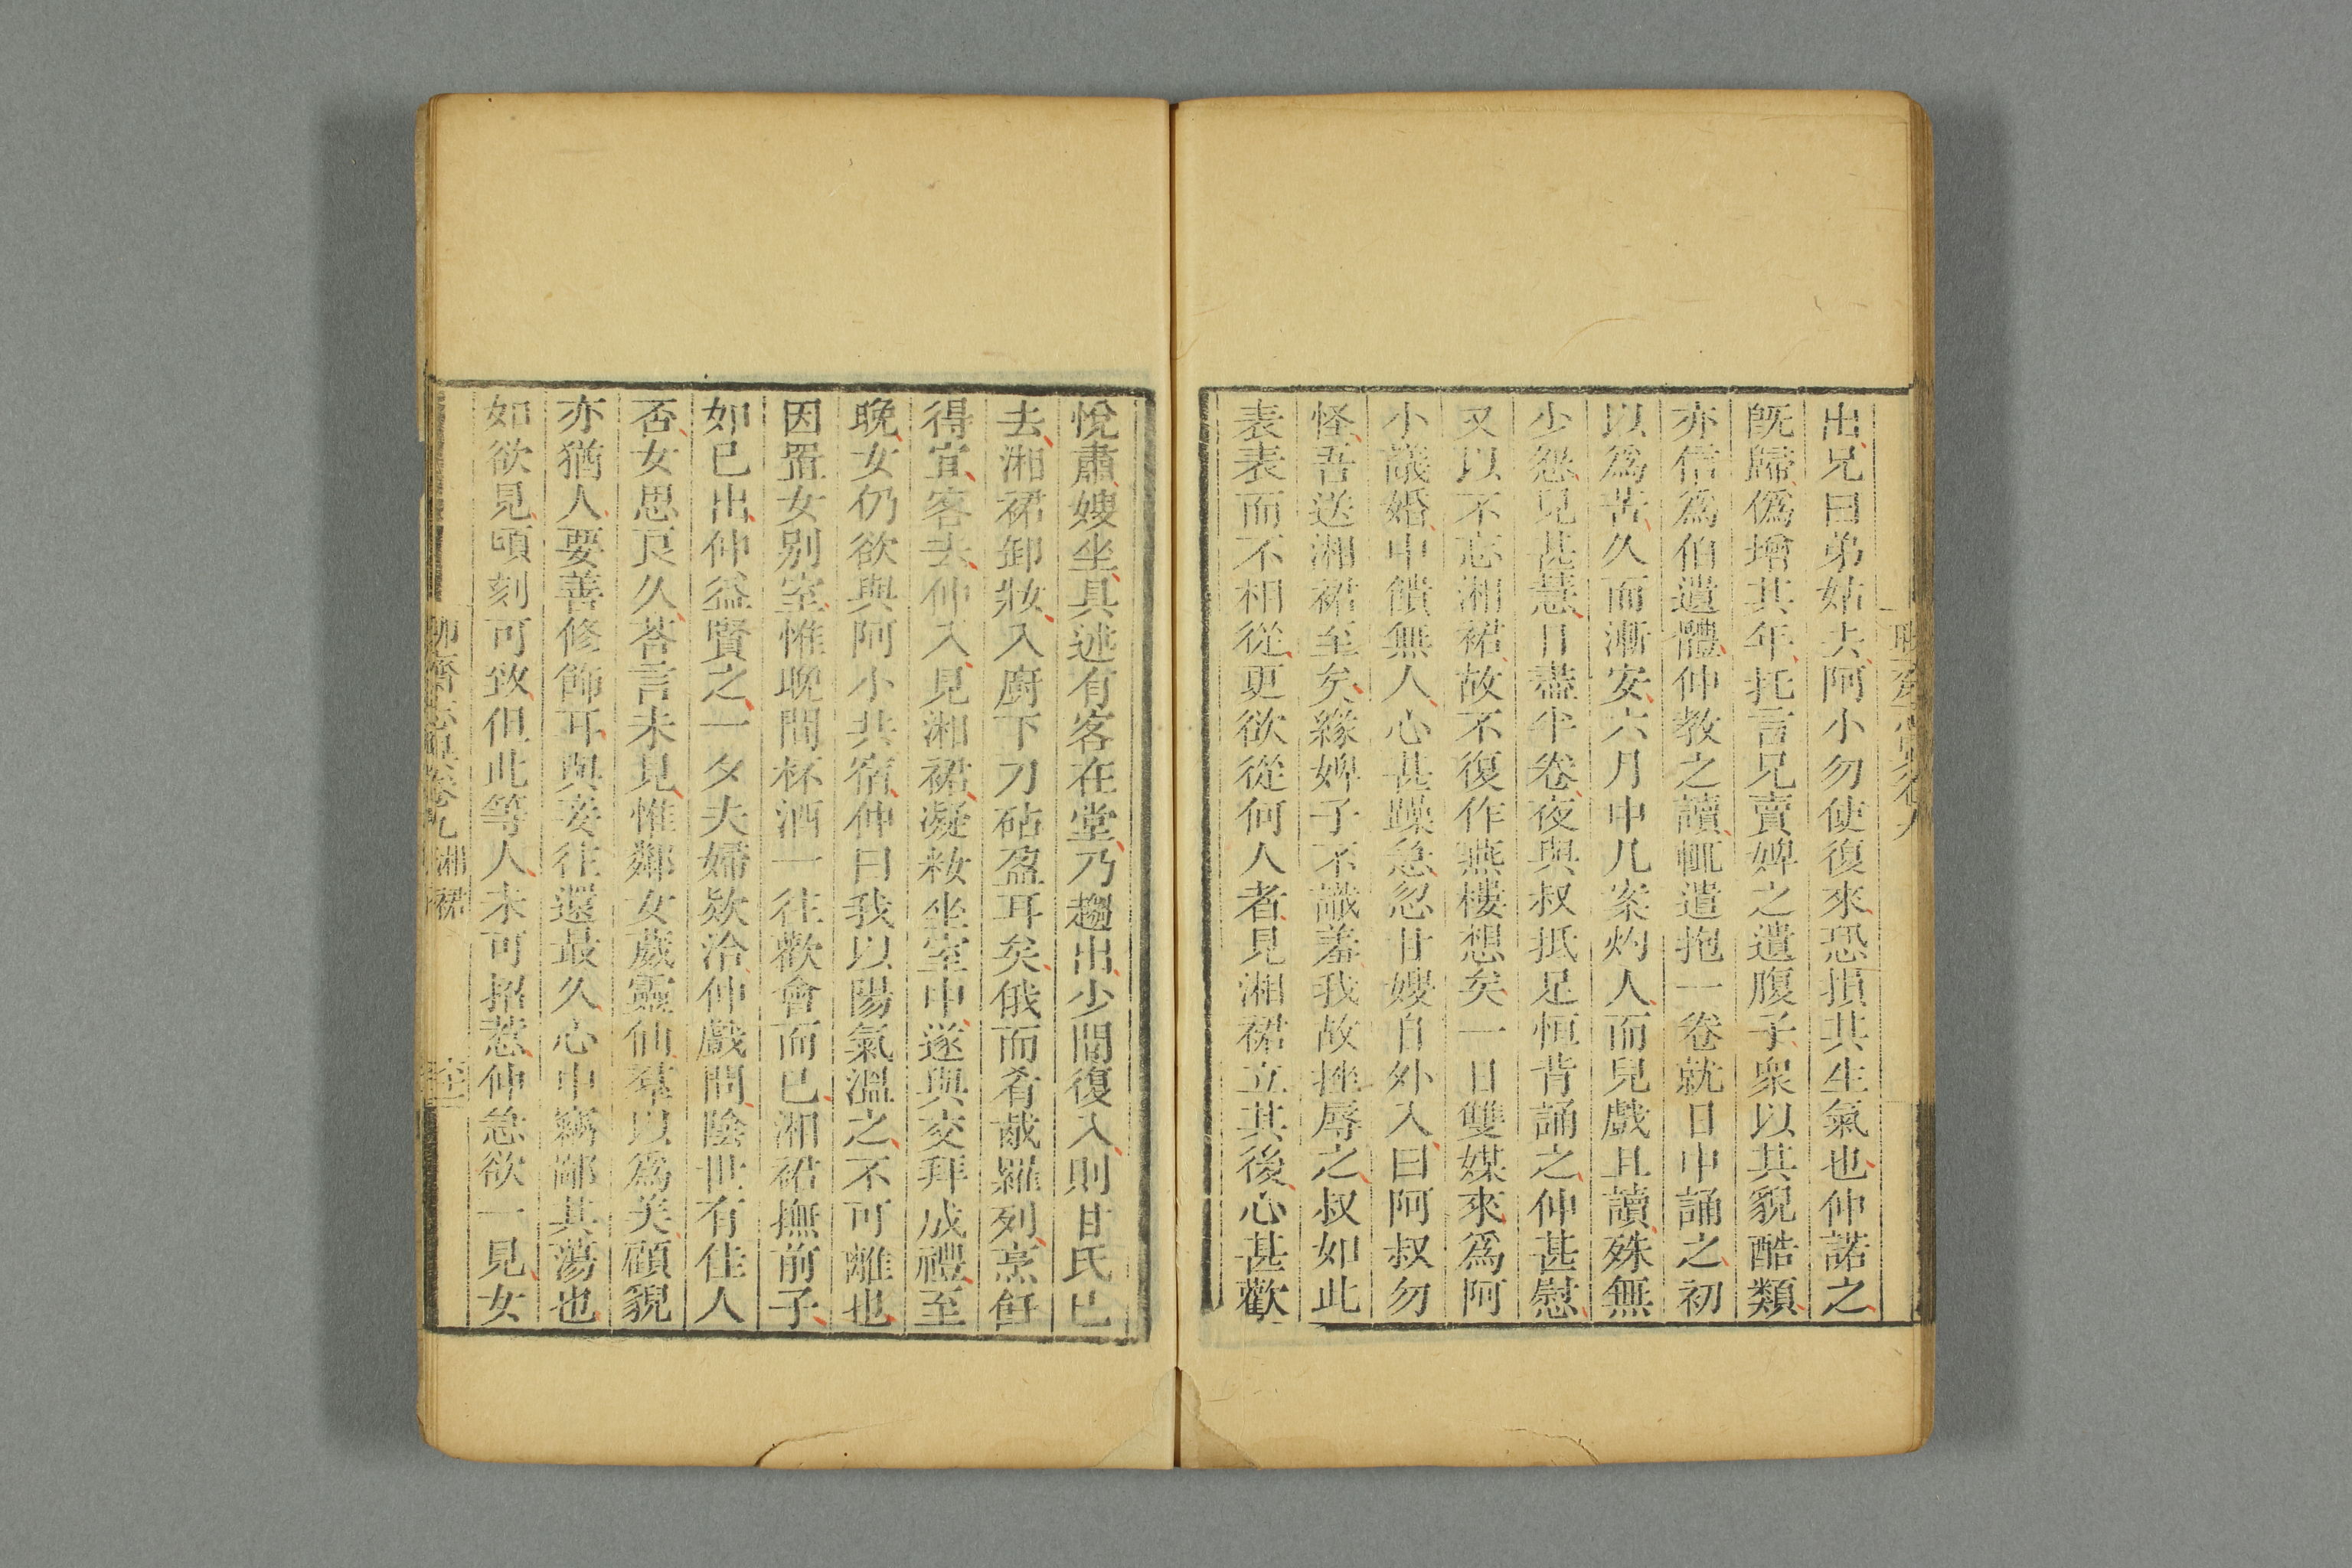 出兄曰弟姑去阿小勿使復來恐損其生氣也仲諾之
旣歸僞增其年托言兄賣婢之遺腹子衆以其貌酷類
亦信爲伯遺體仲教之讀輒遣抱一卷就日中誦之初
以爲苦久而漸安六月中几案灼人而兒戲且讀殊無
少怨兒甚慧日盡半卷夜與叔抵足恒背誦之仲甚慰
又以不忘湘裙故不復作燕樓想矣一日雙媒來爲阿
小議婚中饋無人心甚躁急忽甘嫂自外入曰阿叔勿
怪吾送湘裙至矣緣婢子不識羞我故挫辱之叔如此
表表而不相從更欲從何人者見湘裙立其後心甚歡
悅肅嫂坐具述有客在堂乃趨出少間復入則甘氏已
去湘裙卸妝入廚下刀砧盈耳矣俄而肴胾羅列烹飪
得宜客去仲入見湘裙凝粧坐室中遂與交拜成禮至
晚女仍欲與阿小共宿仲曰我以陽氣溫之不可離也
因置女别室惟晚間杯酒一往歡會而已湘裙撫前子
如已出仲益賢之一夕夫婦欵洽仲戲問陰世有佳人
否女思良久荅言未見惟鄰女葳靈仙羣以爲美顧貌
亦猶人要善修飾耳與妾往還最久心中竊鄙其蕩也
如欲見頃刻可致但此等人未可招惹仲急欲一見女
聊齋志異卷九 湘裙